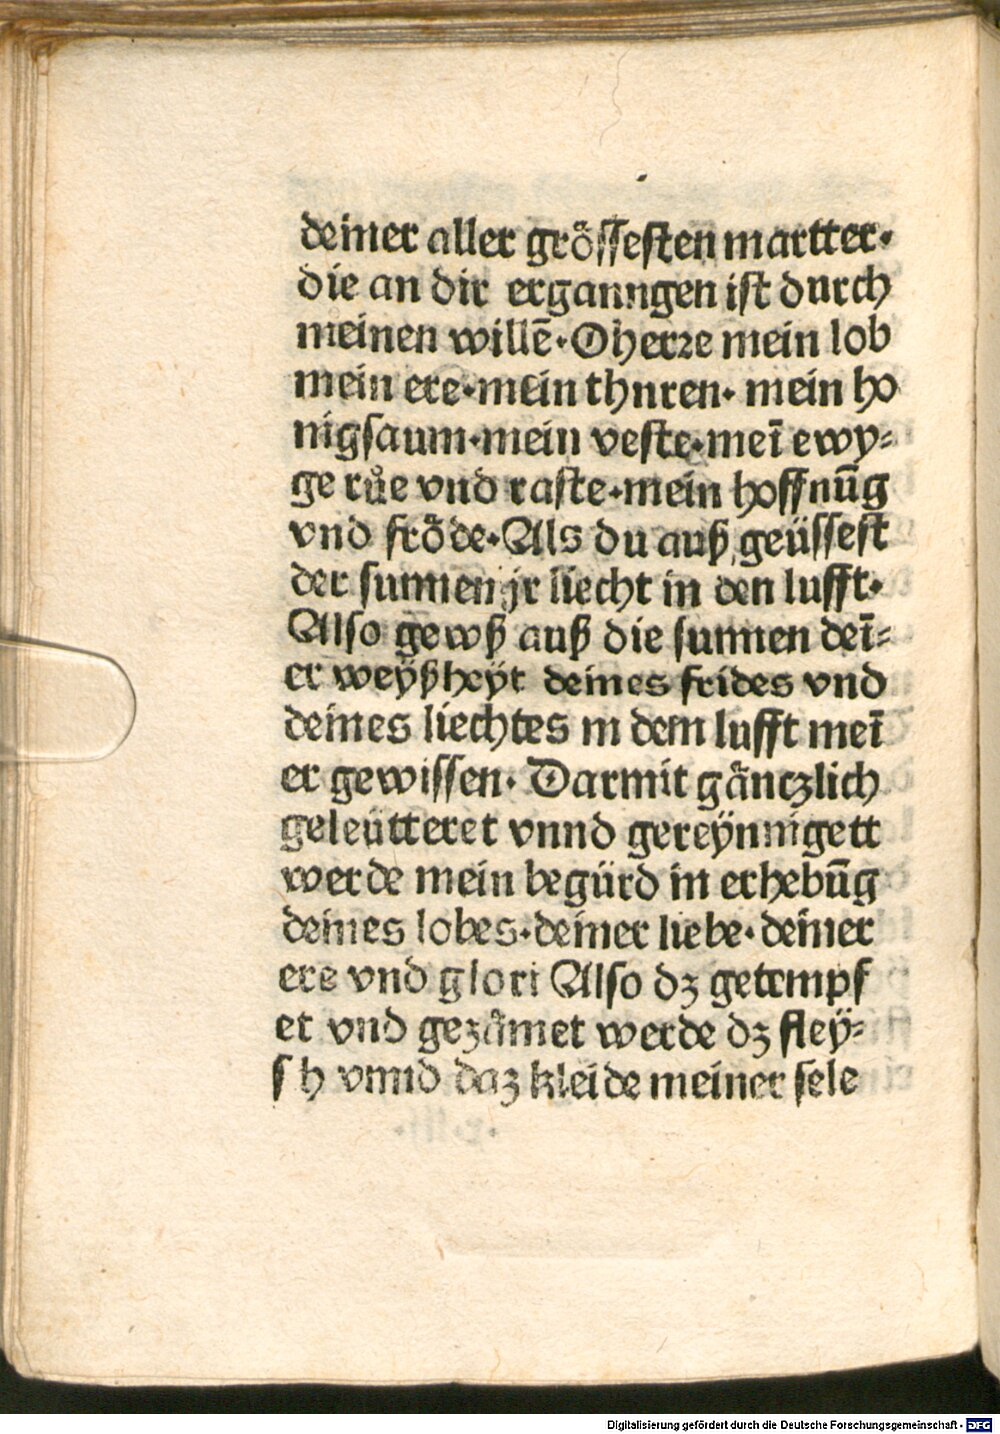 deiner aller grössesten martter·
die an dir erganngen ist durch
meinen willē·O herꝛe mein lob
mein ere·mein thuren· mein ho
nigsaum·mein veste·meī ewy-
ge růe vnd raste·mein hoffnūg
vnd frö́de·Als du auß geüssest
der sunnen jr liecht in den lufft·
Also gewß auß die sunnen deī-
er weyßheyt deines frides vnd
deines liechtes in dem lufft meī
er gewissen· Darmit gäntzlich
geleütteret vnnd gereynnigett
werde mein begürd in erhebūg
deines lobes·deiner liebe·deiner
ere vnd glori Also dz getempf
et vnd gezämet werde dz fley-
s h vnnd daz kleide meiner sele
Digitalisierung gefördert durch die Deutsche Forschungsgemeinschaft - DFG